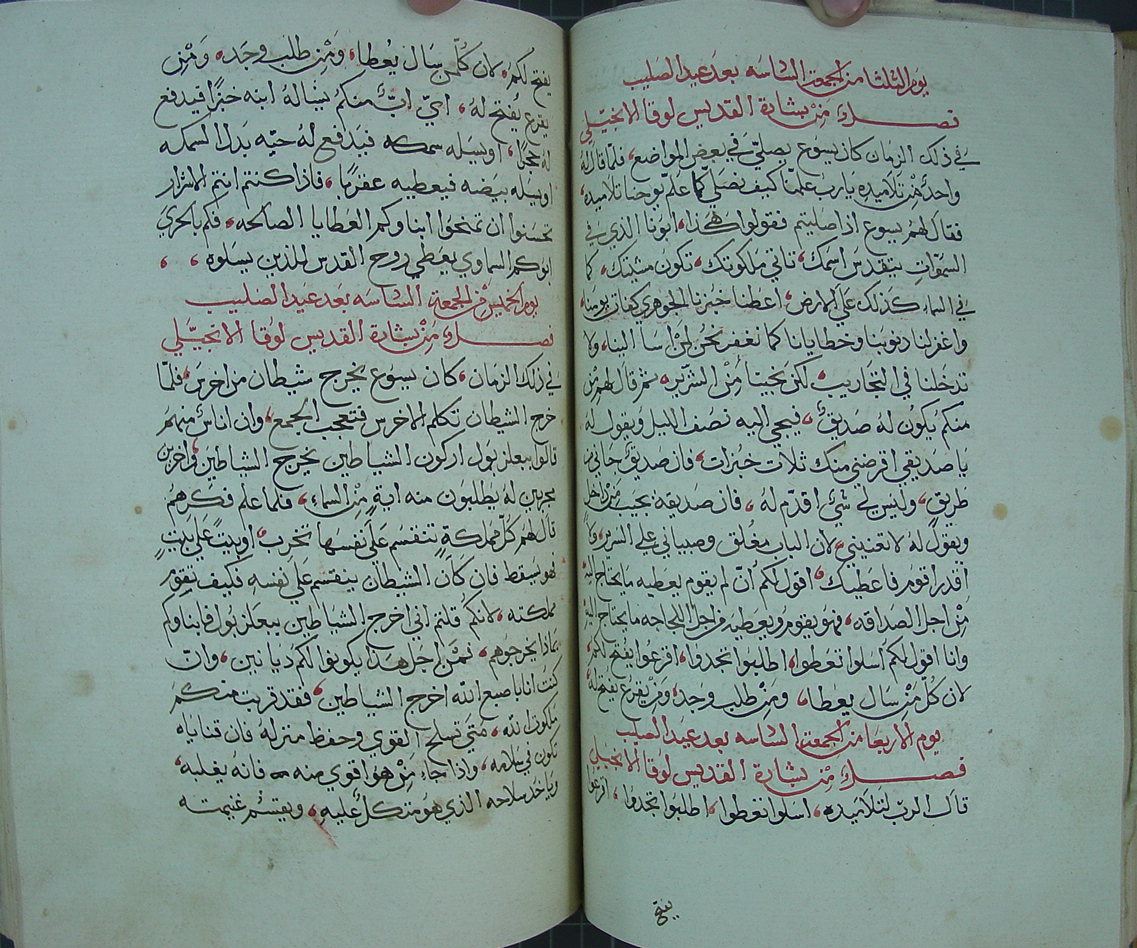 يوم الثلثا من الجمعة السادسه بعد عيد الصليب
فصل من بشارة القديس لوقا الانجيلي
في ذلك الزمان كان يسوع يصلي في بعض المواضع، فلما قال له
واحد من تلاميذه يارب علمنا كيف نصلي كما علم يوحنا تلاميذه،
فقال لهم يسوع اذا صليتم فقولوا هكذا، ابونا الذي في
السموات يتقدس اسمك، تاتي ملكوتك، تكون مشيتك، كما
في السماء كذلك على الارض، اعطنا خبزنا الجوهري كفاف يومنا،
واغفر لنا ديوبنا وخطايانا كما نغفر نحن لمن اسا الينا، ولا
تدخلنا في التجاريب، لكن نجينا من الشرير، ثم قال لهم من
منكم يكون له صديق، فيجي اليه نصف الليل ويقول له
يا صديقي اقرضني منك ثلاث خبزات، فان صديق جاني من
طريق، وليس لي شي اقدم له، فان صديقه يجيب من داخل
ويقول له لا تعنيني، لان الباب مغلق وصبياني على السرير، ولا
اقدر اقوم فاعطيك، اقول لكم ان لم يقوم يعطيه ما يحتاج اليه
من اجل الصداقه، فهو يقوم ويعطيه من اجل اللجاجه ما يحتاج اليه
وانا اقول لكم اسلوا تعطوا، اطلبوا تجدوا، اقرعوا يفتح لكم،
لان كل من سال يعطا، ومن طلب وجد، ومن يقرع يفتح له،
يوم الاربعا من الجمعة السادسه بعد عيد الصليب
فصل من بشارة القديس لوقا الانجيلي
قال الرب لتلاميذه، اسلوا تعطوا، اطلبوا تجدوا، اقرعوا
يفتح
يفتح لكم، لان كل من سال يعطا، ومن طلب وجد، ومن
يقرع يفتح له، اي اب منكم يساله ابنه خبزا فيدفع
له حجرا، او يسله سمكه فيدفع له حيه بدل السمكه
او يسله بيضه فيعطيه عقربا، فاذا كنتم انتم الاشرار
تحسنوا ان تمنحوا ابناوكم العطايا الصالحه، فكم بالحري
ابوكم السماوي يعطي روح القدس للذين يسلوه،
يوم الخميس من الجمعة السادسه بعد عيد الصليب
فصل من بشارة القديس لوقا الانجيلي
في ذلك الزمان، كان يسوع يخرج شيطان من اخرس، فلما
خرج الشيطان تكلم الاخرس فتعجب الجمع، وان اناس منهم
قالوا ببعلزبول اركون الشياطين يخرج الشياطين، واخرين
مجربين له يطلبون منه اية من السماء، فلما علم فكرهم
قال لهم كل مملكة تنقسم على نفسها تخرب، او بيت على بيت
فهو يسقط فان كان الشيطان ينقسم على نفسه فكيف تقوم
مملكته، لانكم قلتم اني اخرج الشياطين ببعلزبول فابناوكم
بماذا يخرجوهم، فمن اجل هذا يكونوا لكم ديانين، وان
كنت انا باصبع الله اخرج الشياطين، فقد قربت منكم
ملكوت الله، متى تسلح القوي وحفظ منزله فان قناياه
تكون في سلامه، واذا جاء من هو اقوي منه فانه يغلبه،
وياخذ سلاحه الذي هو متكل عليه، ويقتسم غنيمته